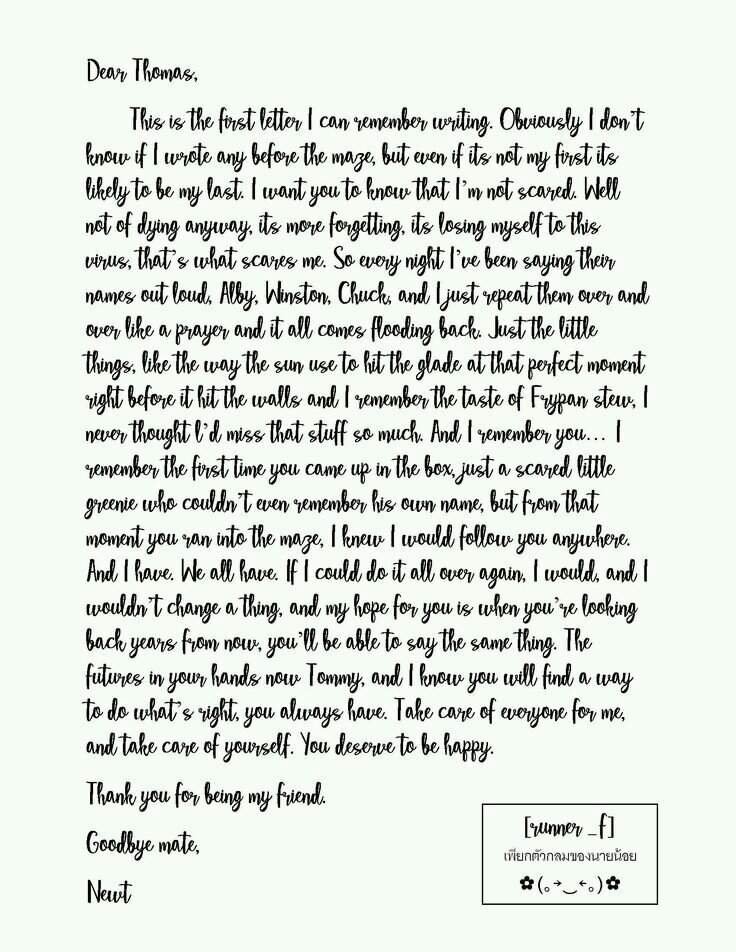 Dear Thomas,
This is the first letter I can remember writing. Obviously I don't
know if I wrote any before the maze, but even if its not my first its
likely to be my last. I want you to know that I'm not scared. Well
not of dying anyway, its more forgetting, its losing myself to this
virus, that's what scares me. So every night I've been saying their
names out loud, Alby, Winston, Chuck, and I just repeat them over and
over like a prayer and it all comes flooding back. Just the little
things, like the way the sun use to hit the glade at that perfect moment
right before it hit the walls and I remember the taste of Frypan stew, I
never thought l'd miss that stuff so much. And I remember you... I
remember the first time you came up in the box, just a scared little
greenie who couldn't even remember his own name, but from that
moment you ran into the maze, I knew I would follow you anywhere.
And I have. We all have. If I could do it all over again, I would, and I
wouldn't change a thing, and my hope for you is when you're looking
back years from now, you'll be able to say the same thing. The
futures in your hands now Tommy, and I know you will find a way
to do what's right, you always have. Take care of everyone for me,
and take care of yourself. You deserve to be happy.
Thank you for being my friend.
Goodbye mate,
Newt
[runner _f]
เพียกตัวกลมของนายน้อย
✿(｡•́‿•̀｡)✿